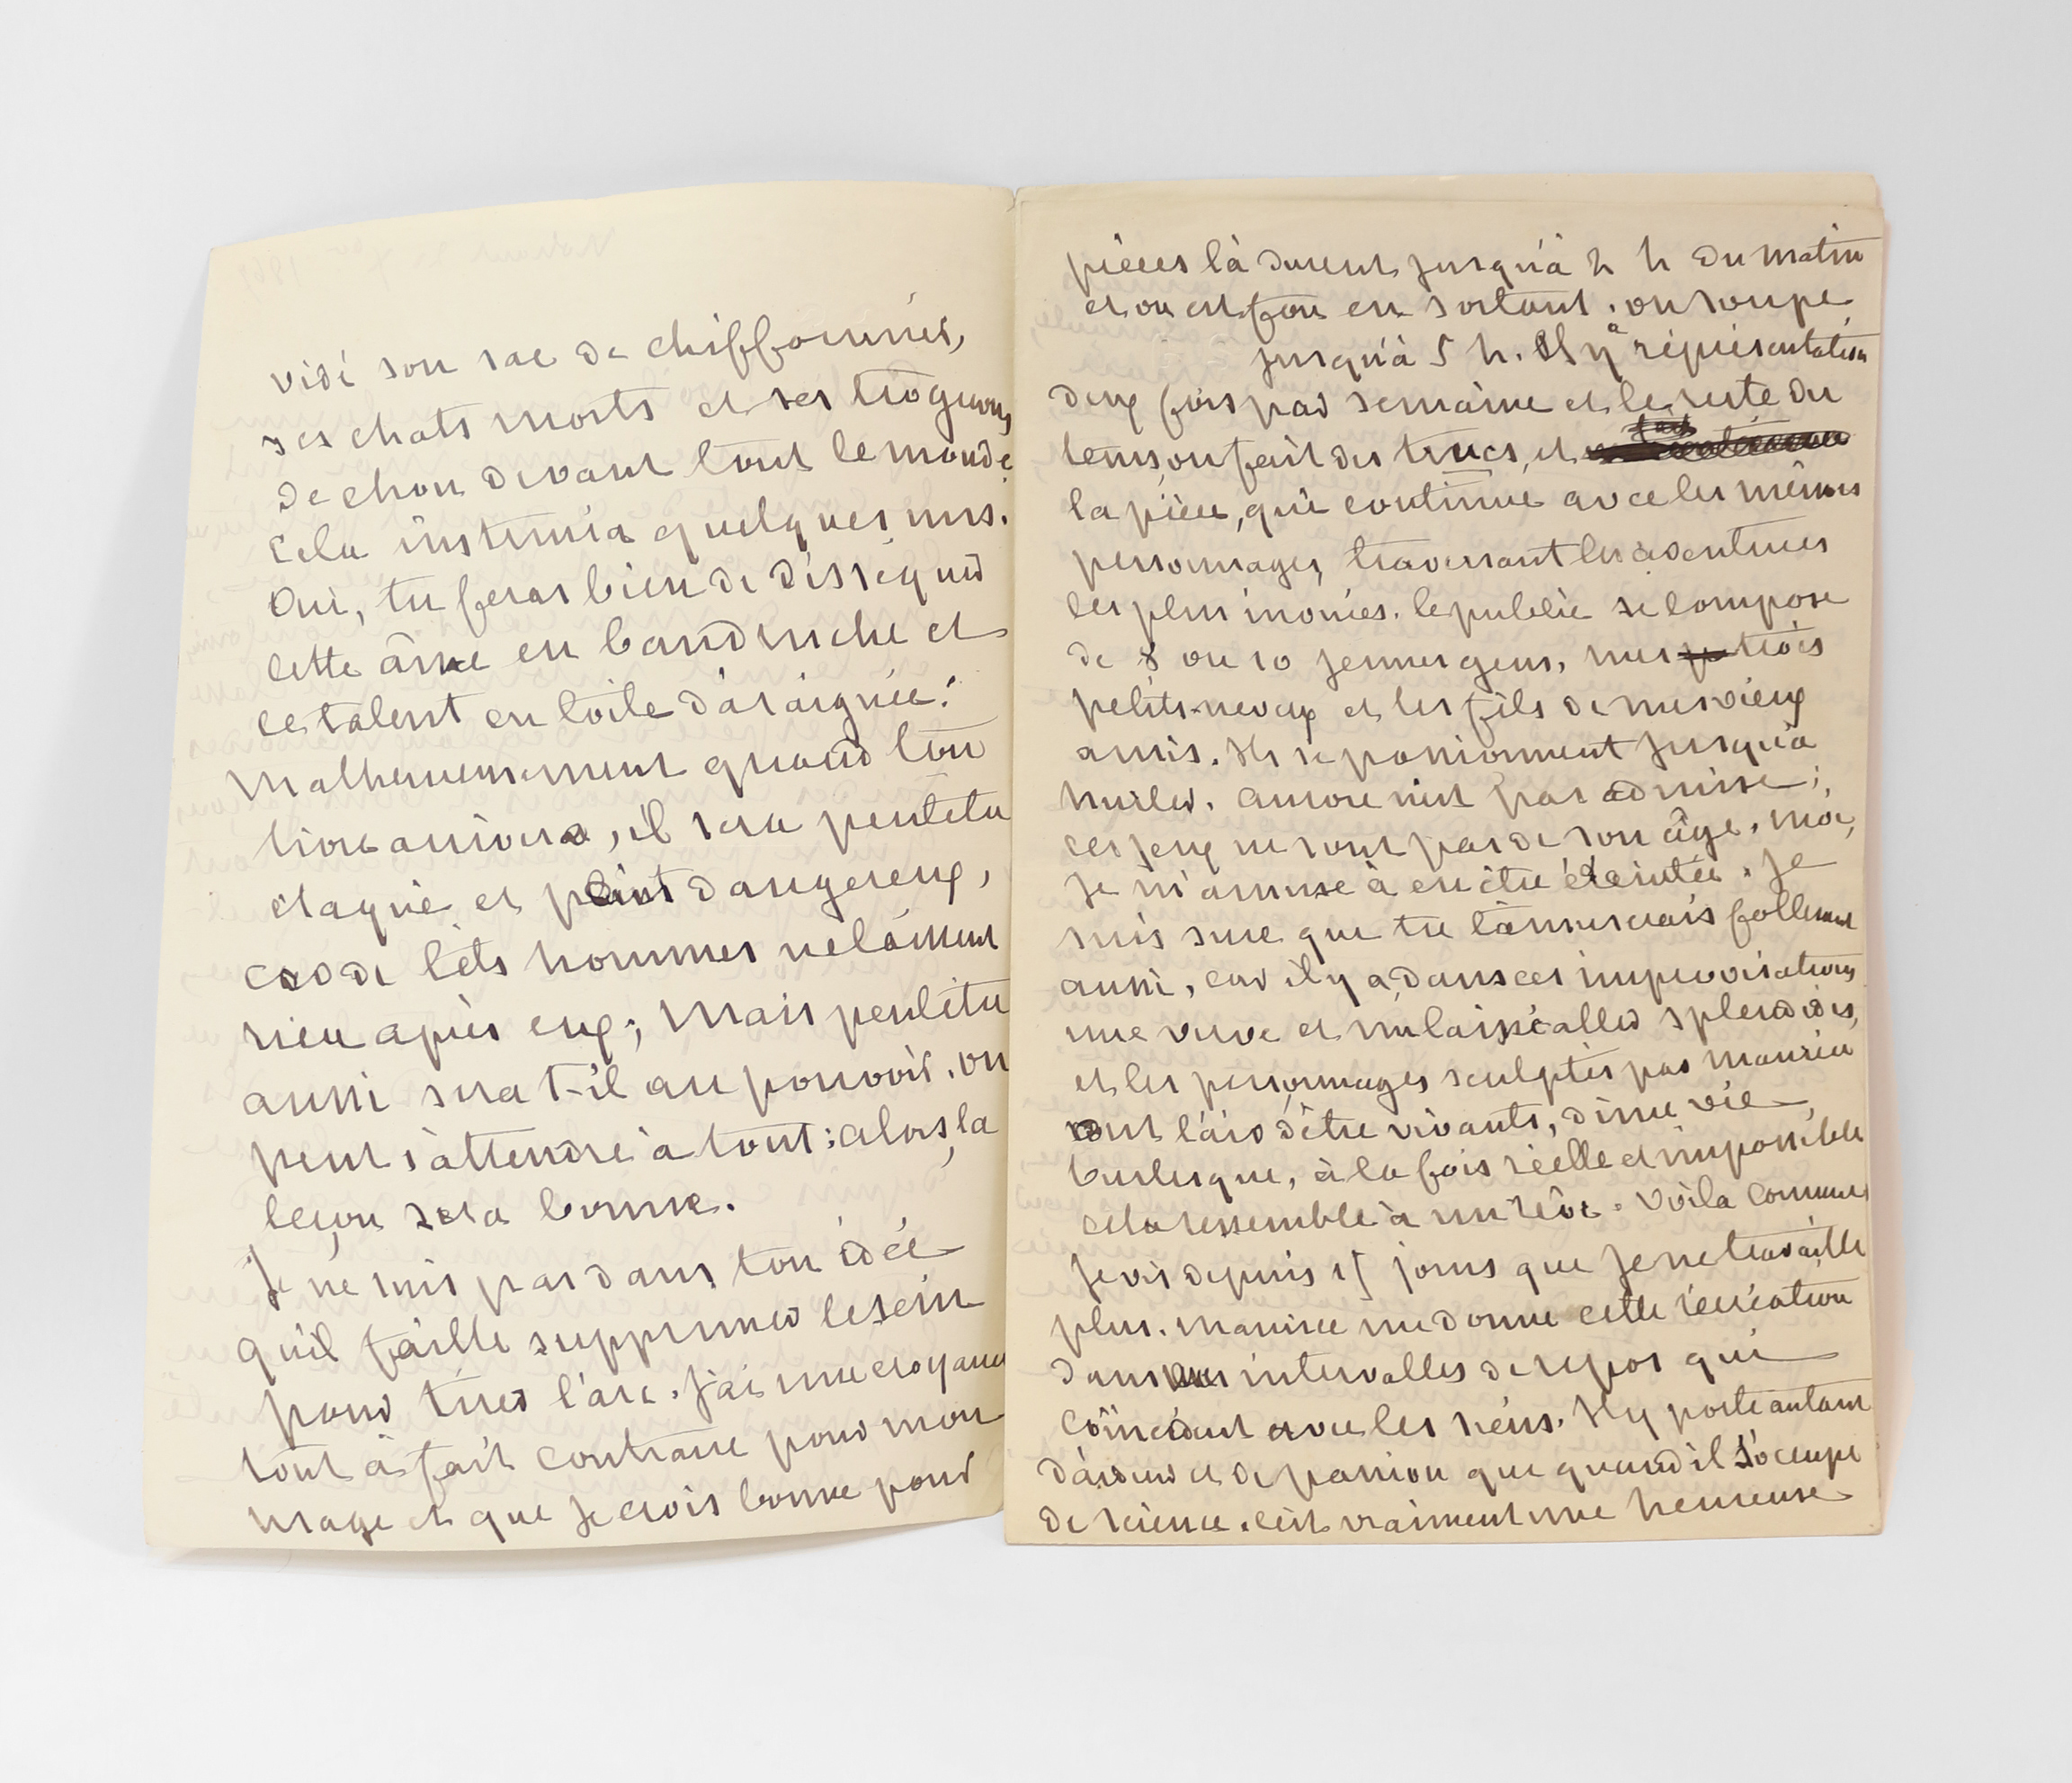 vidé son sac de chiffonnier,
ses chats morts et ses trognons
de chou devant tout le monde.
cela instruira quelques uns.
Oui, tu feras bien de disséquer
cette âme en baudruche et
ce talent en toile d'araignée!
Malheureusement quand ton
livre arrivera, il sera peutetre
claqué et point dangereux,
car de tels hommes ne laissent
rien après eux; Mais peutetre
aussi sera t-il au pouvoir. on
peut s'attendre à tout: alors, la
leçon sera bonne.
Je ne suis pas dans ton idée
qu'il faille supprimer le sein
pour tirer l'arc. j'ai une croyance
tout à fait contraire pour mon
usage et que je crois bonne pour
pièces là durent jusqu'à 2 h du matin
et on est fou en sortant. on soupe
jusqu'à 5 h. Il y a représentation
deux fois par semaine et le reste du
tems, on fait des trucs, et
la pièce, qui continue avec les mêmes
personnages, traversant les aventures
les plus inouies. le public se compose
de 8 ou 10 jeunes gens, mes trois
petits-neveux et les fils de mes vieux
amis. Ils se passionnent jusqu'à
hurler. Aurore n'est pas admise;
ces jeux ne sont pas de son âge. moi,
je m'amuse à en être éreintée. Je
suis sure que tu t'amuserais follement
aussi, car il y a dans ces improvisations
une verve et un laissé aller splendides,
et les personnages sculptés par Maurice
ont l'air d'être vivants, d'une vie
burlesque, à la fois réelle et impossible
cela ressemble à un rêve. Voila comme
je vis depuis 15 jours que je ne travaille
plus. Maurice me donne cette récréation
dans mes intervalles de repos qui
coïncident avec les siens. Il y porte autant
d'ardeur et de passion que quand il s'occupe
de science. c'est vraiment une heureuse